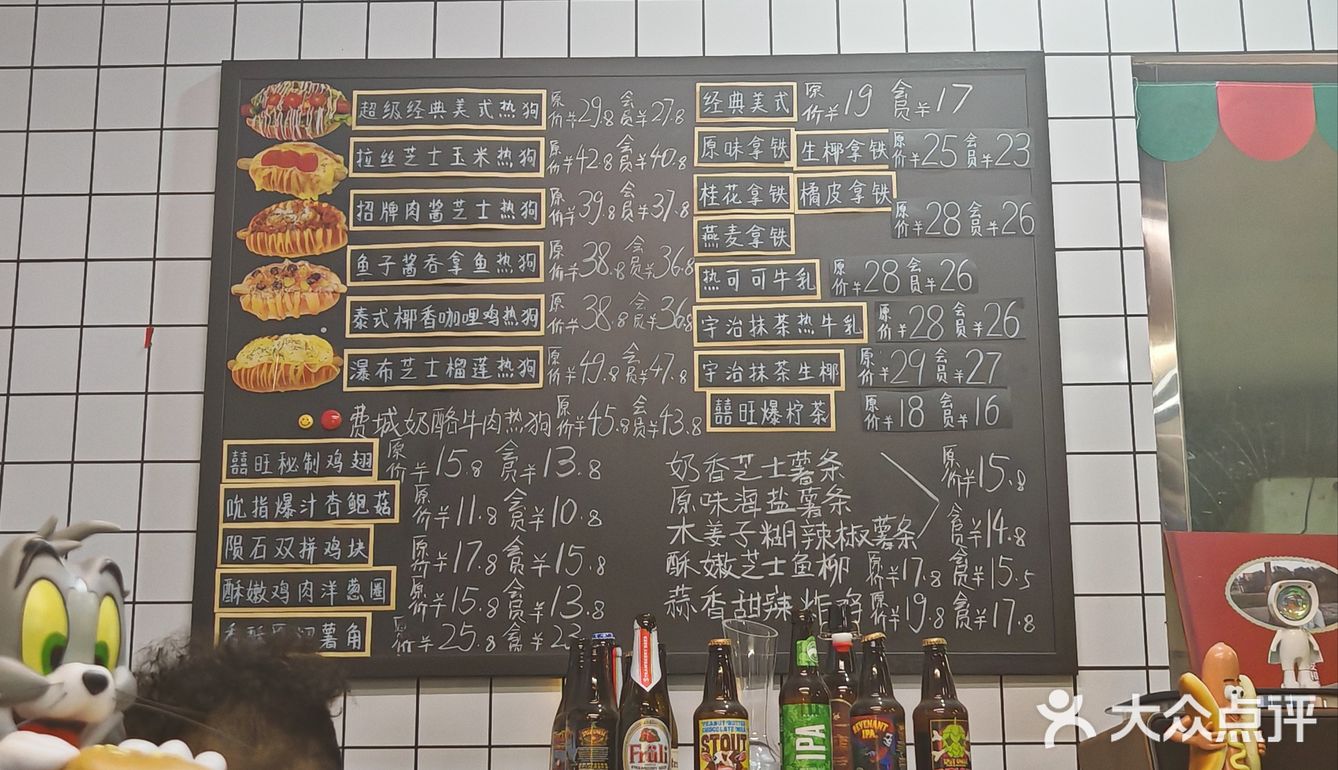 超级经典美式热狗 原价¥29.8 会员¥27.8
拉丝芝士玉米热狗 原价¥42.8 会员¥40.8
招牌肉酱芝士热狗 原价¥39.8 会员¥37.8
鱼子酱吞拿鱼热狗 原价¥38.8 会员¥36.8
泰式椰香咖哩鸡热狗 原价¥38.8 会员¥36.8
瀑布芝士榴莲热狗 原价¥49.8 会员¥47.8
费城奶酪牛肉热狗 原价¥45.8 会员¥43.8
囍旺秘制鸡翅 原价¥15.8 会员¥13.8
吮指爆汁杏鲍菇 原价¥11.8 会员¥10.8
陨石双拼鸡块 原价¥17.8 会员¥15.8
酥嫩鸡肉洋葱圈 原价¥15.8 会员¥13.8
薯角 原价¥25.8 会员¥23
经典美式 原价¥19 会员¥17
原味拿铁 生椰拿铁 原价¥25 会员¥23
桂花拿铁 橘皮拿铁
燕麦拿铁 原价¥28 会员¥26
热可可牛乳 原价¥28 会员¥26
宇治抹茶热牛乳 原价¥28 会员¥26
宇治抹茶生椰 原价¥29 会员¥27
囍旺爆柠茶 原价¥18 会员¥16
奶香芝士薯条 原价¥15.8
原味海盐薯条
木姜子糊辣椒薯条 会员¥14.8
酥嫩芝士鱼柳 原价¥17.8 会员¥15.5
蒜香甜辣炸鸡 原价¥19.8 会员¥17.8
Früli
PEANUT BUTTER
CHOCOLATE MILK
STOUT
IPA
REVENANT
IPA
大众点评